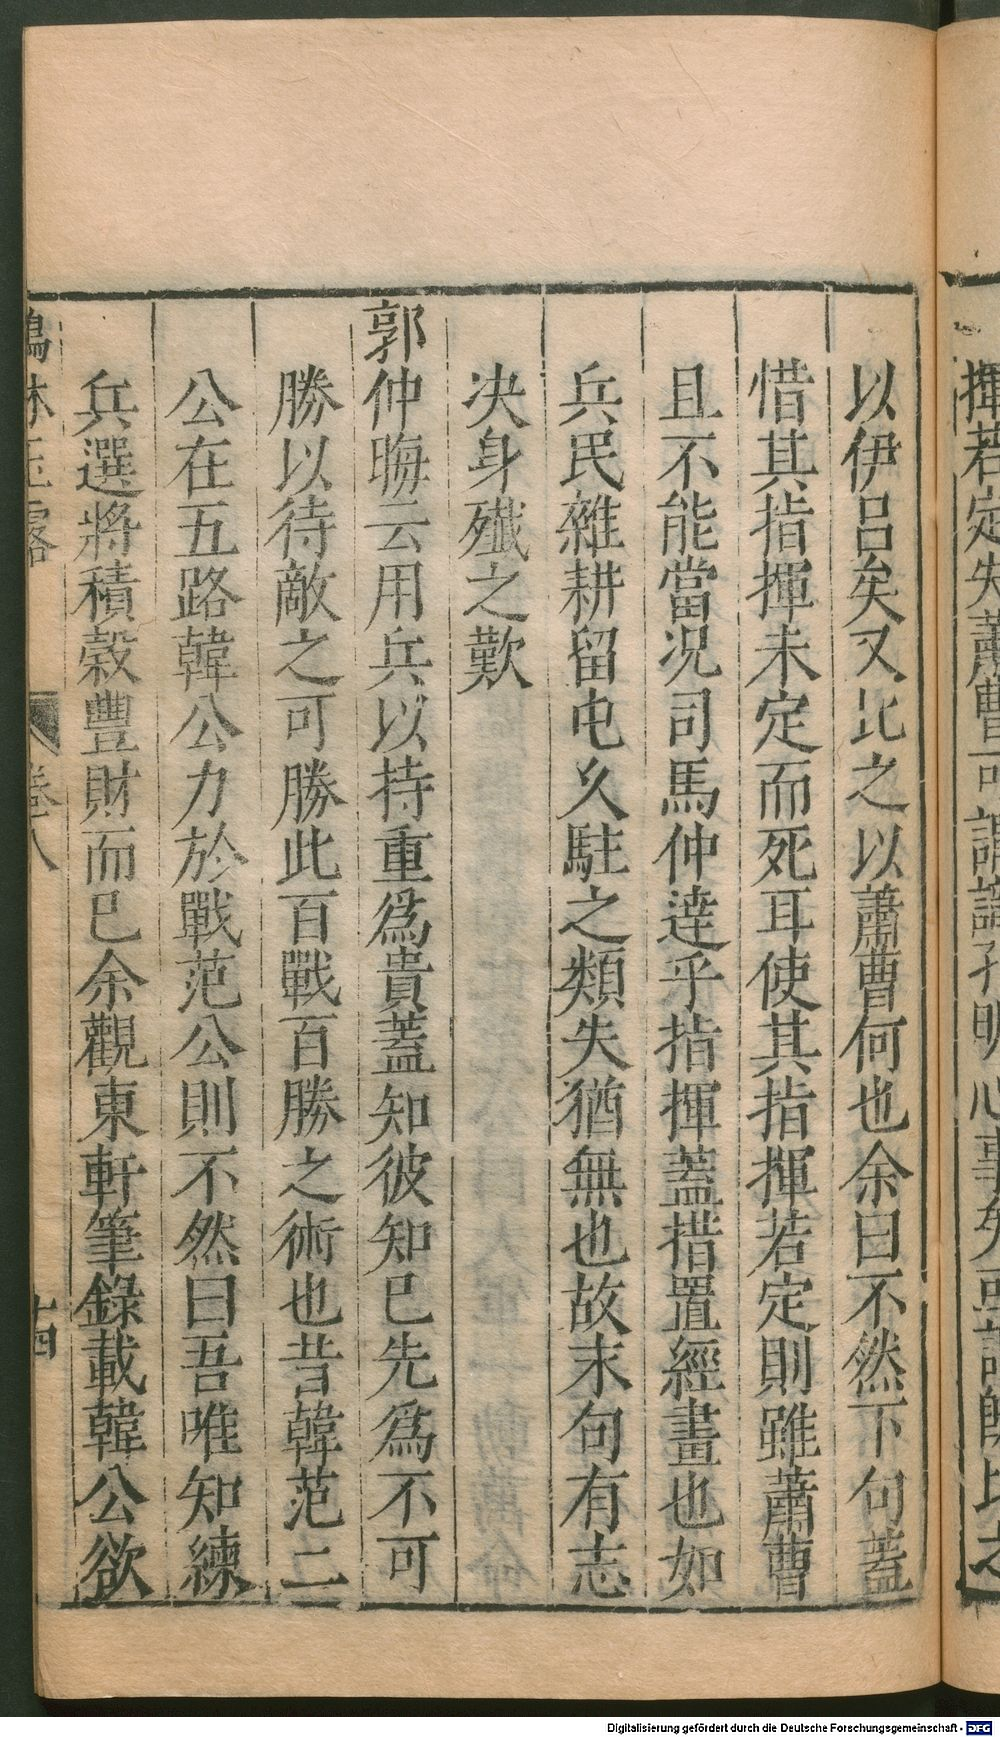 揮若定失蕭曹
以伊呂矣又比之以蕭曹何也余曰不然下句蓋
惜其指揮未定而死耳使其指揮若定則雖蕭曹
且不能當况司馬仲達乎指揮蓋措置經畫也如
兵民雜耕留屯久駐之類失猶無也故末句有志
决身殲之歎
郭仲晦云用兵以持重爲貴蓋知彼知已先爲不可
勝以待敵之可勝此百戰百勝之術也昔韓范二
公在五路韓公力於戰范公則不然曰吾唯知練
兵選將積穀豐財而已余觀東軒筆錄載韓公欲
鶴林玉露
卷八
十四
Digitalisierung gefördert durch die Deutsche Forschungsgemeinschaft - DFG